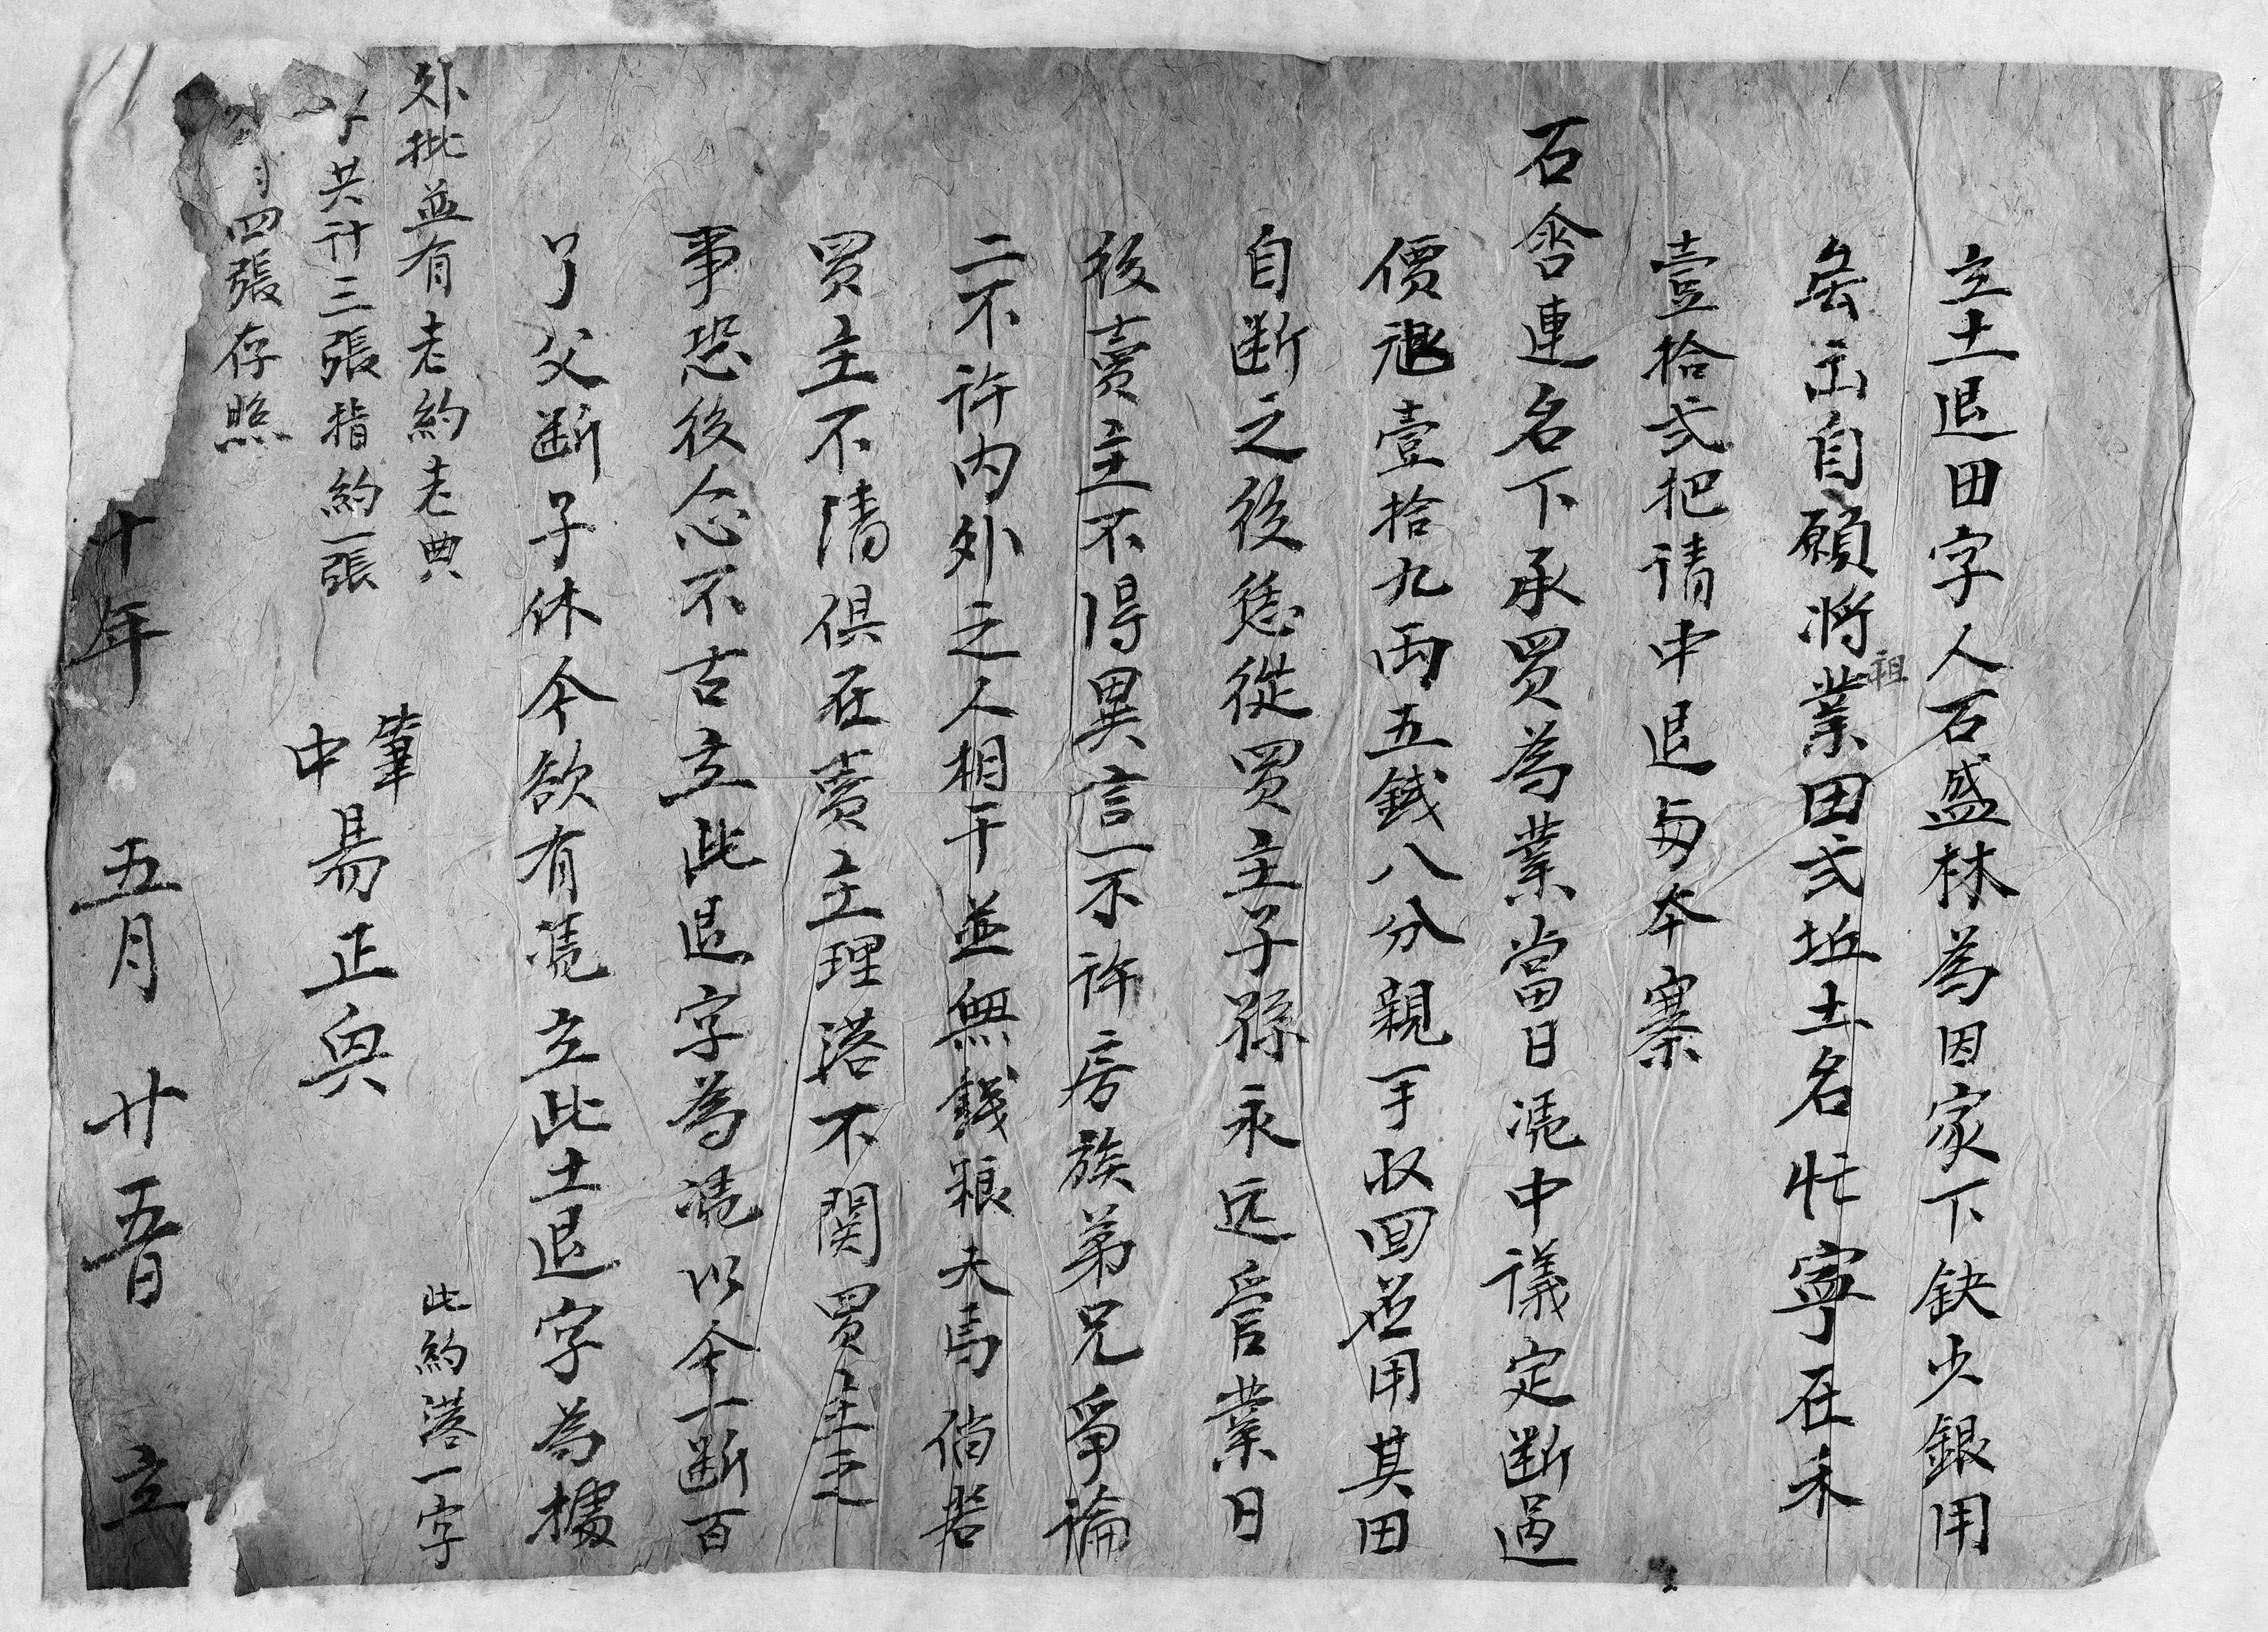 立土退田字人石盛林為因家下缺少銀用
無出自願將祖業田弍坵土名忙寧在禾
壹拾弍把請中退与本寨
石含連名下承買為業當日憑中議定断過
價銀壹拾九両五錢八分親手收回應用其田
自断之後恁從買主子孫永远管業日
後賣主不得異言一不許房族弟兄爭論
二不許内外之人相干並無錢粮夫馬倘若
買主不清俱在賣主理落不関買主之
事恐後人心不古立此退字為憑以今一断百
了父断子休今欲有憑立此土退字為據
外批並有老約老典
字共計三張指約一張
四張存照
此約落一字
筆
中
易正興
十年 五月 廿五日 立